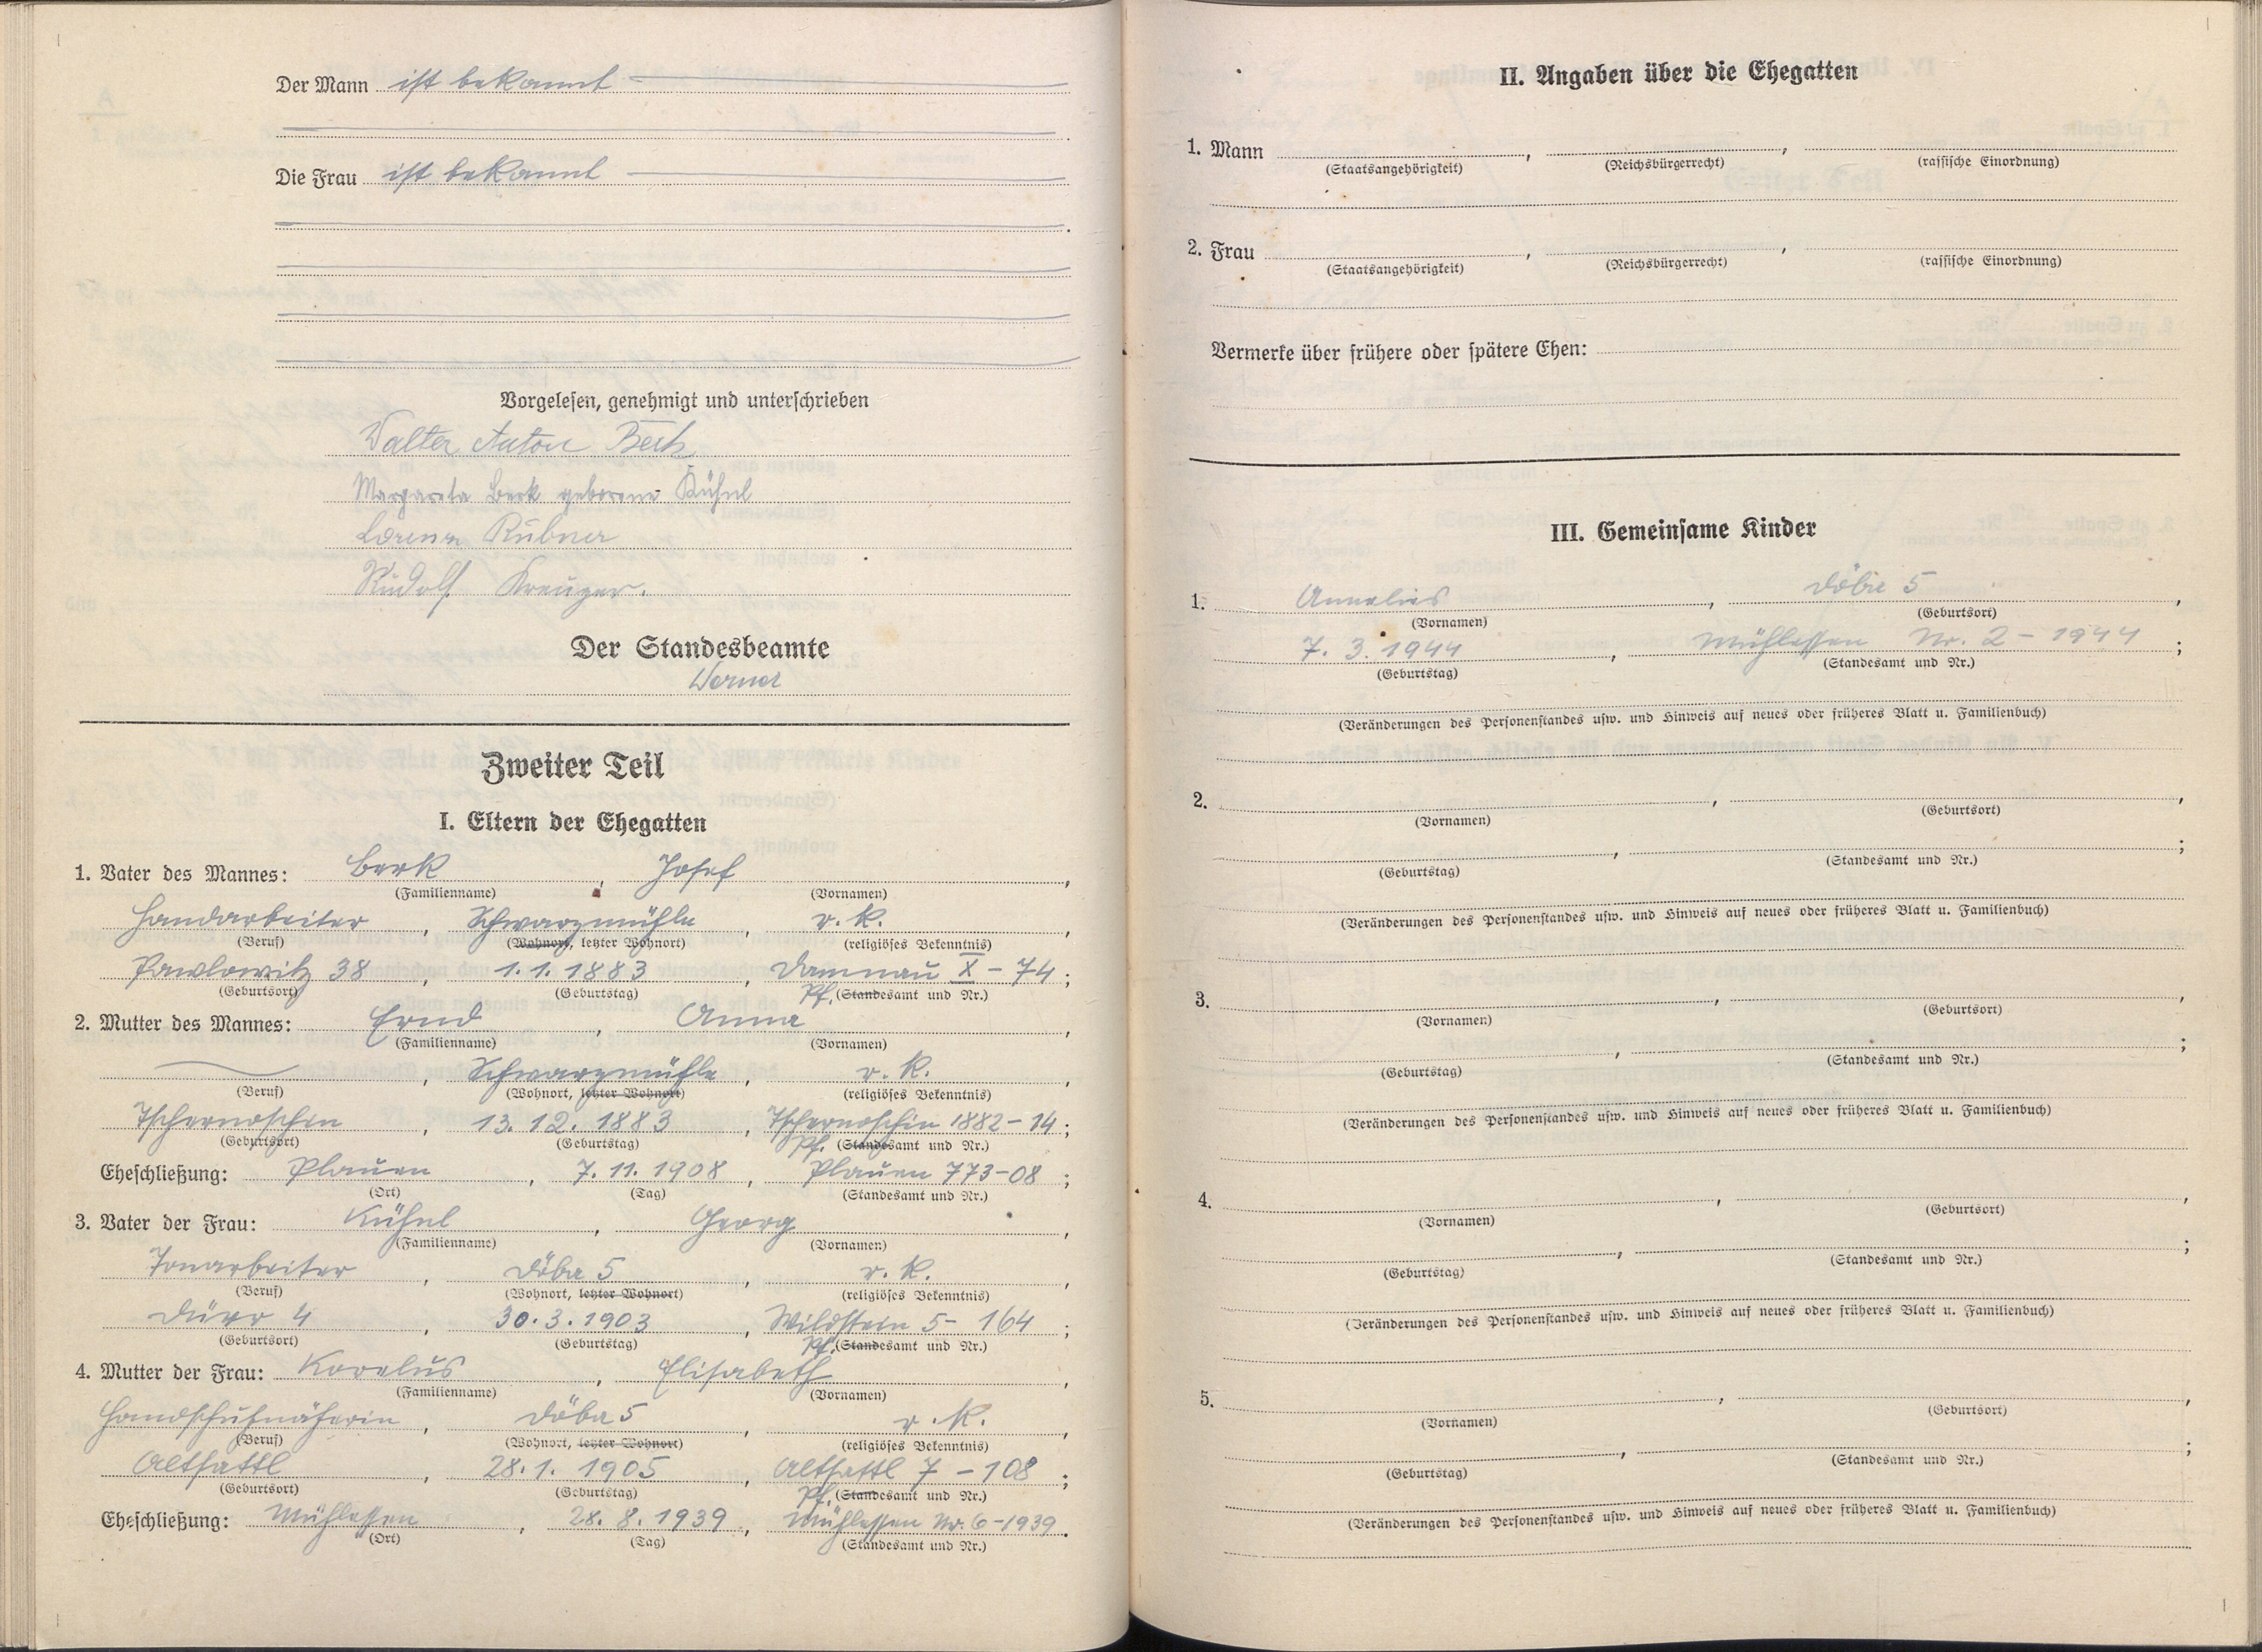 Der Mann ist bekannt
Die Frau ist bekannt
Vorgelesen, genehmigt und unterschrieben
Walter Anton Berk
Margareta Berk geborene Kühnl
Lorenz Rubner
Rudolf Kreuzer.
Der Standesbeamte
Werner
Zweiter Teil
I. Eltern der Ehegatten
1. Vater des Mannes: Berk, Josef,
(Familienname) (Vornamen)
Handarbeiter, Schwarzmühle, r. k.,
(Beruf) (Wohnort, letzter Wohnort) (religiöses Bekenntnis)
Pawlowitz 38, 1.1.1883, Damnau X - 74;
(Geburtsort) (Geburtstag) Pf. (Standesamt und Nr.)
2. Mutter des Mannes: Ernd, Anna,
(Familienname) (Vornamen)
, Schwarzmühle, r. k.,
(Beruf) (Wohnort, letzter Wohnort) (religiöses Bekenntnis)
Tschernoschin, 13.12.1883, Tschernoschin 1882-14;
(Geburtsort) (Geburtstag) Pf. (Standesamt und Nr.)
Eheschließung: Plauen, 7.11.1908, Plauen 773-08;
(Ort) (Tag) (Standesamt und Nr.)
3. Vater der Frau: Kühnl, Georg,
(Familienname) (Vornamen)
Tonarbeiter, Döba 5, r. k.,
(Beruf) (Wohnort, letzter Wohnort) (religiöses Bekenntnis)
Dürr 4, 30.3.1903, Wildstein 5- 164;
(Geburtsort) (Geburtstag) Pf. (Standesamt und Nr.)
4. Mutter der Frau: Korelus, Elisabeth,
(Familienname) (Vornamen)
Handschuhnäherin, Döba 5, r. k.,
(Beruf) (Wohnort, letzter Wohnort) (religiöses Bekenntnis)
Altsattl, 28.1.1905, Altsattl 7 - 108;
(Geburtsort) (Geburtstag) Pf. (Standesamt und Nr.)
Eheschließung: Mühlessen, 28.8.1939, Mühlessen Nr. 6-1939.
(Ort) (Tag) (Standesamt und Nr.)
II. Angaben über die Ehegatten
1. Mann , ,
(Staatsangehörigkeit) (Reichsbürgerrecht) (rassische Einordnung)
2. Frau , ,
(Staatsangehörigkeit) (Reichsbürgerrecht) (rassische Einordnung)
Vermerke über frühere oder spätere Ehen:
III. Gemeinsame Kinder
1. Annelies, Döba 5,
(Vornamen) (Geburtsort)
7.3.1944, Mühlessen Nr. 2 - 1944;
(Geburtstag) (Standesamt und Nr.)
(Veränderungen des Personenstandes usw. und Hinweis auf neues oder früheres Blatt u. Familienbuch)
2. , ,
(Vornamen) (Geburtsort)
, ;
(Geburtstag) (Standesamt und Nr.)
(Veränderungen des Personenstandes usw. und Hinweis auf neues oder früheres Blatt u. Familienbuch)
3. , ,
(Vornamen) (Geburtsort)
, ;
(Geburtstag) (Standesamt und Nr.)
(Veränderungen des Personenstandes usw. und Hinweis auf neues oder früheres Blatt u. Familienbuch)
4. , ,
(Vornamen) (Geburtsort)
, ;
(Geburtstag) (Standesamt und Nr.)
(Veränderungen des Personenstandes usw. und Hinweis auf neues oder früheres Blatt u. Familienbuch)
5. , ,
(Vornamen) (Geburtsort)
, ;
(Geburtstag) (Standesamt und Nr.)
(Veränderungen des Personenstandes usw. und Hinweis auf neues oder früheres Blatt u. Familienbuch)